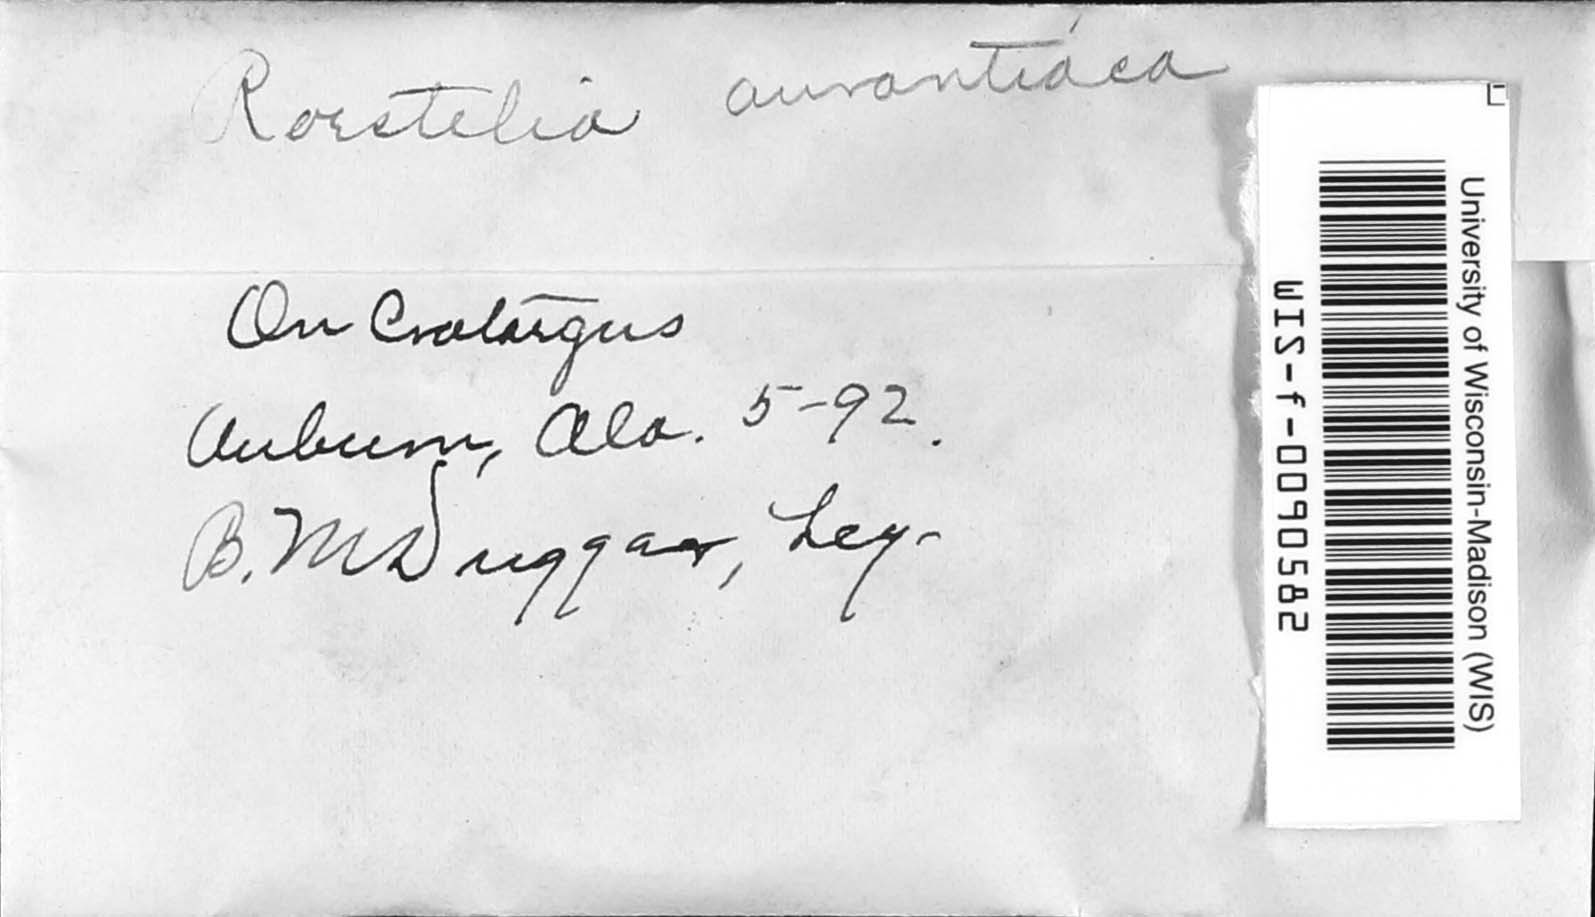 Roestelia aurantiaca
On Crataegus
Auburn, Ala. 5-92.
B. M Duggar, Leg.
University of Wisconsin-Madison (WIS)
WIS-f-0090582